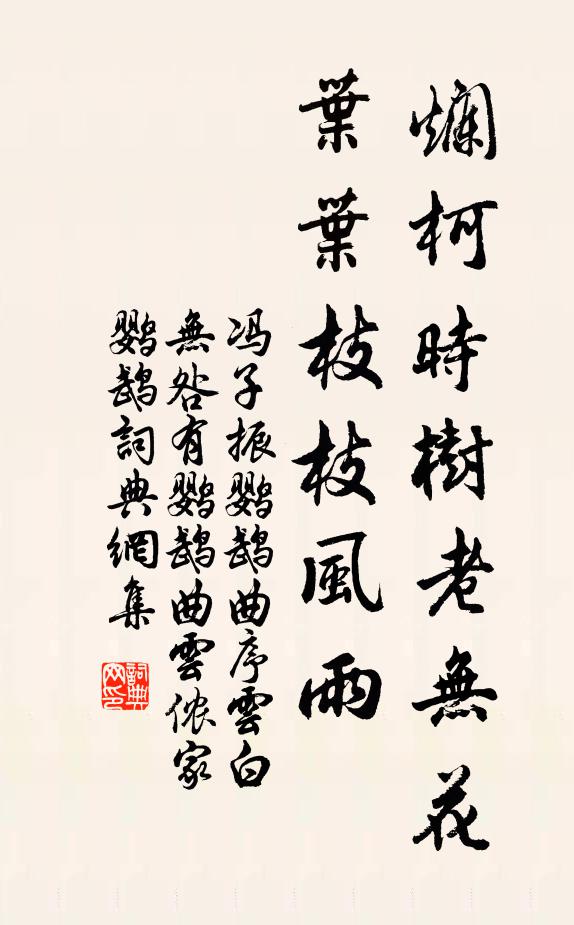 爛柯時樹老無花
葉葉枝枝風雨
冯子振鹦鵡曲序雲白
無咎有鹦鵡曲雲侬家
鹦鵡詞典網集
詞典网印